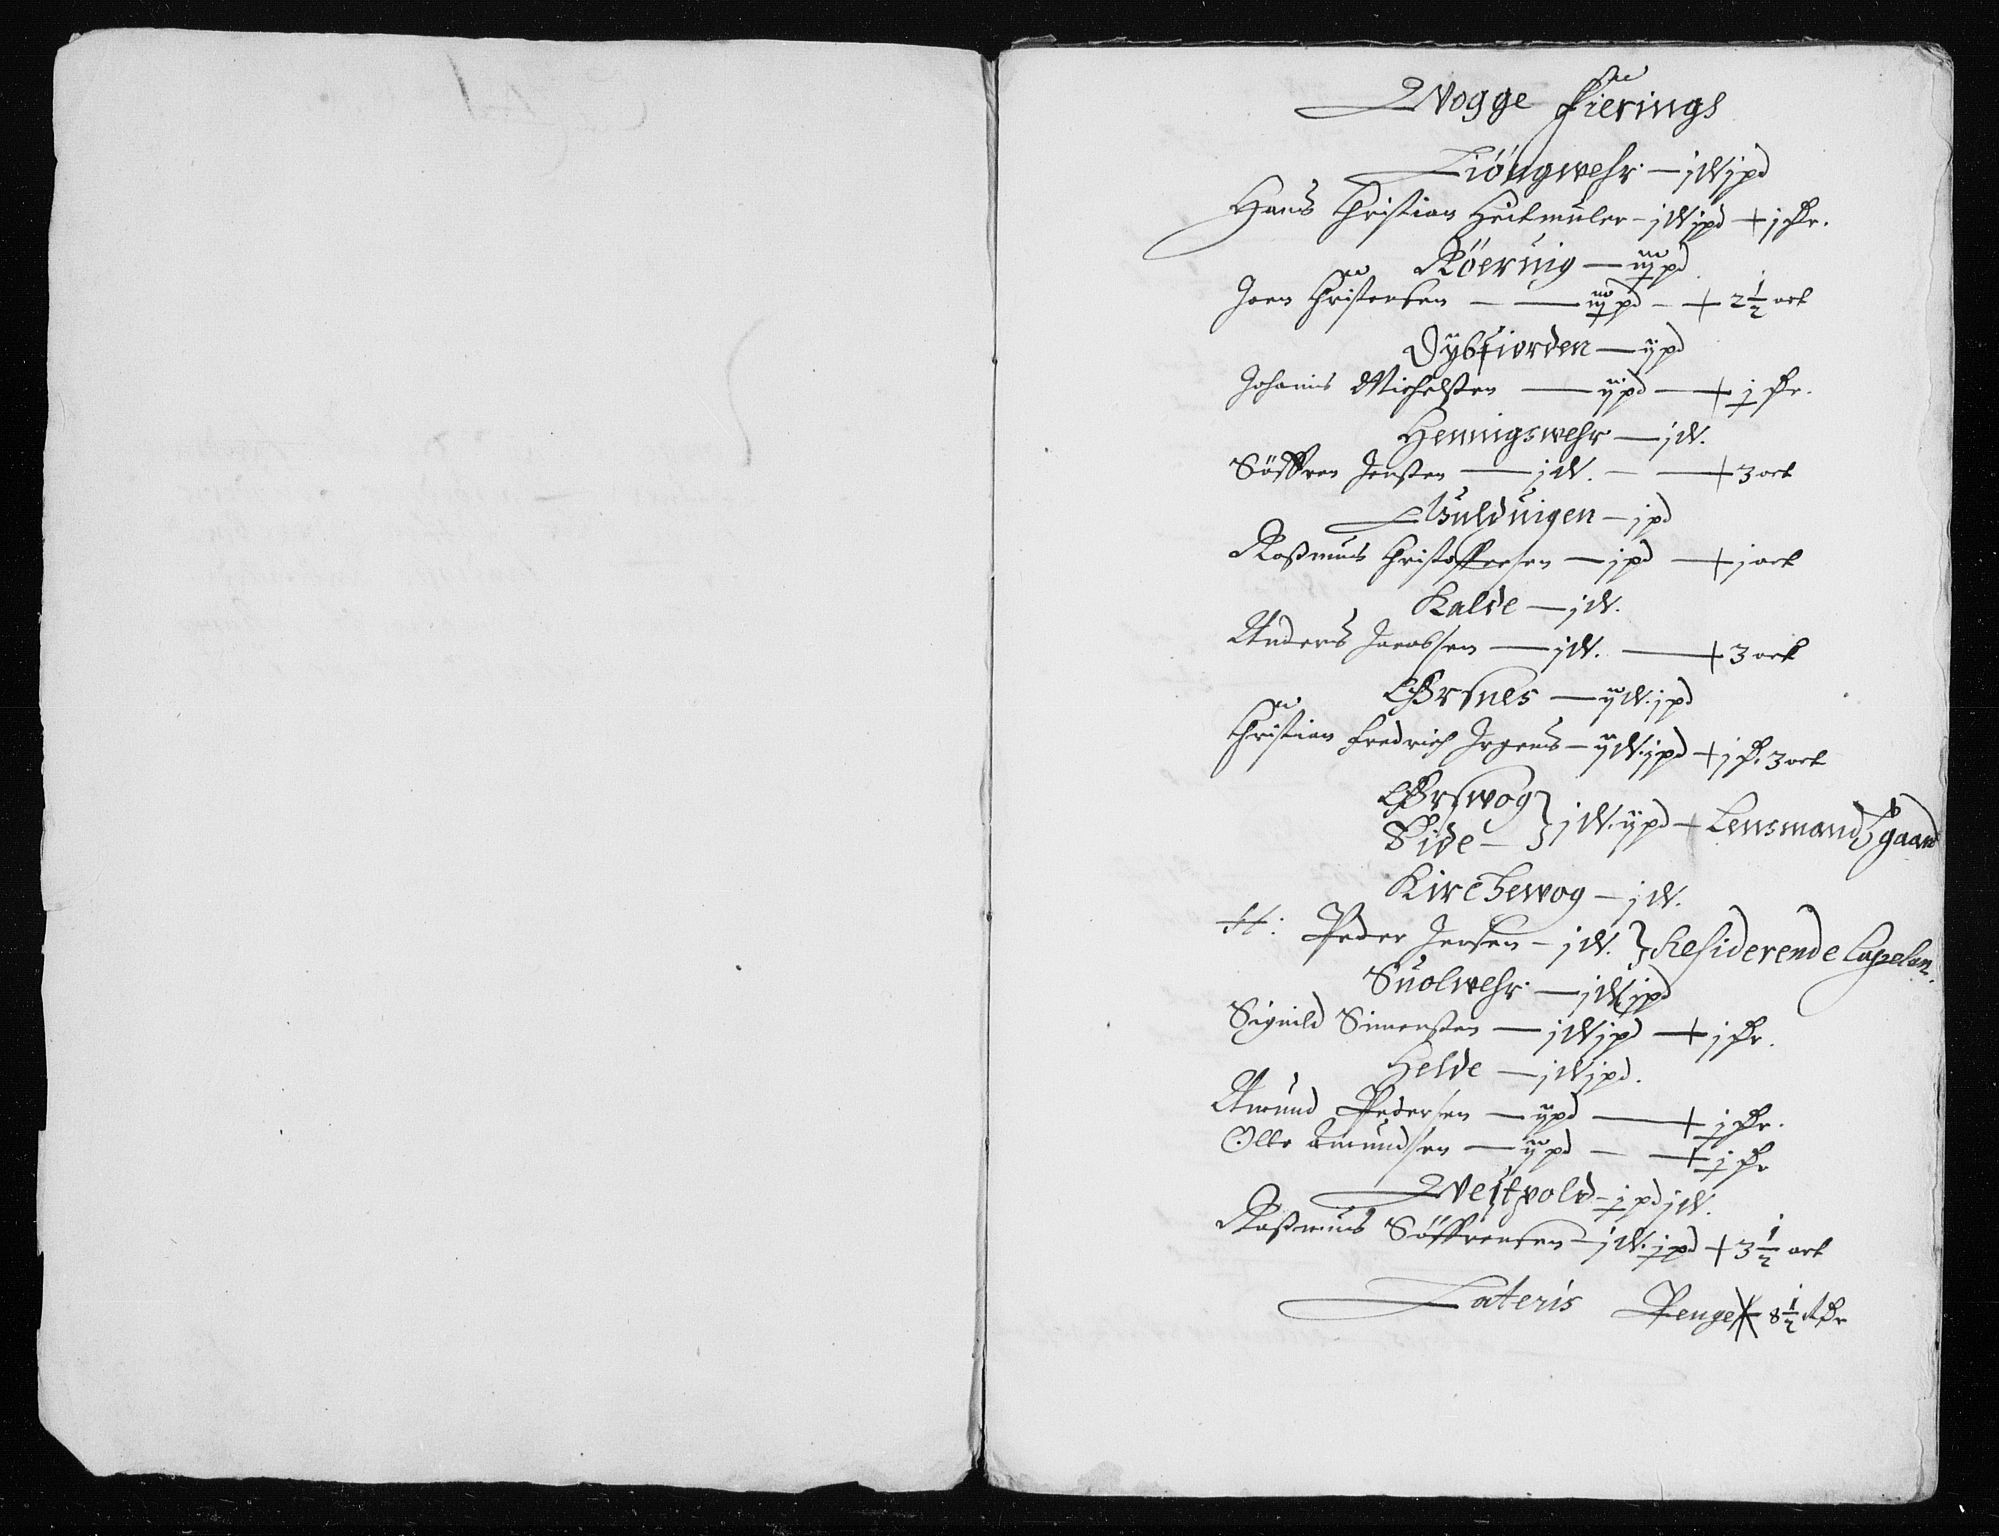 Wogge Fierings
Liöngwehr — j W j pd
Hans Christian Heitmüler – j W j pd + j Rr.
Röervig — iij pd
Joen Christensen — iij pd — + 2½ ort
Dybfiorden — ij pd
Johanis Michelsten — ij pd — + j Rr.
Hennigswehr — j W.
Söffren Jensten — j W. — + 3 ort
Guldvigen — j pd
Rasmus Christoffersen — j pd — + j ort
Kalde — j W.
Anders Jacobsen — j W. — + 3 ort
Ørsnes — ij W. j pd
Christian Fredrich Irgens – ij W. j pd + j R. 3 ort
Ørswog } j W. ij pd + Lensmands gaard
Side —
Kirckewog — j W.
H: Peder Jensen – j W. } Residerende Capelan.
Suolwehr — j W j pd
Signild Simensten — j W j pd — + j Rr.
Helde — j W j pd.
Amund Pedersen — ij pd — + j Rr.
Olle Amundsen — ij pd — + j Rr
Westpold – j pd j W.
Rasmus Söffrensen – j W. j pd + 3½ ort
Lateris Penge + 8½ Rr